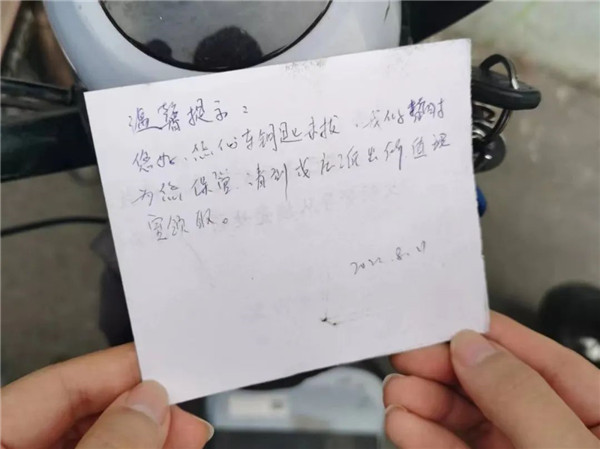 温馨提示：
您好，您的车钥匙未拔，我们暂时
为您保管，请到武庄派出所值班
室领取。
2022.8.29